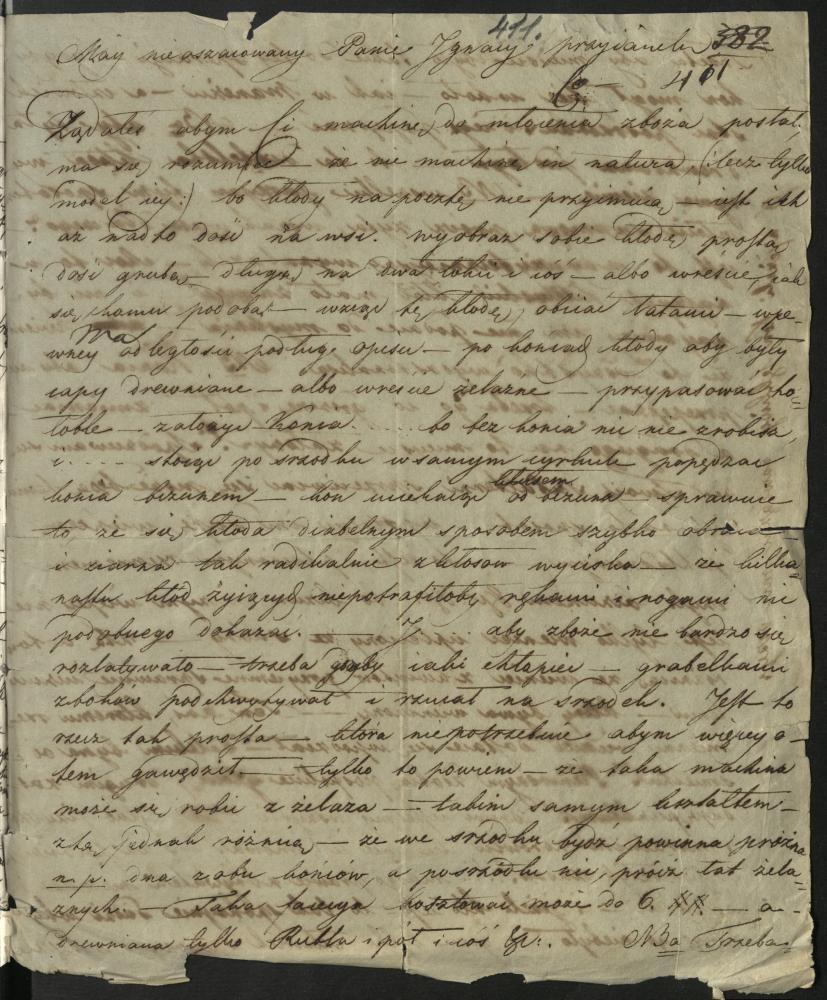 411.
Móy nieoszacowany Panie Ignacy przyiacielu 382
401
Żądałeś abym Ci machinę do młócenia zboża posłał.
ma się rozumieć — że nie machinę in natura, (:lecz tylko
model iey:) bo kłody na pocztę nie przyimuią — iest ich
aż nadto dość na wsi. wyobraź sobie kłodę prostą,
dość grubą — długą na dwa łokci i cóś — albo wreście, iak
się komu podoba — wziąć tę kłodę, obiiać łatami — w pe-
wney odległości podług opisu — po końcach kłody aby były
czpy drewniane — albo wreście żelazne — przypasować ho=
łoble — założyć Konia ..... bo bez konia nic nie zrobisz,
i .... stoiąc po srzodku w samym cyrkule popędzać
konia bizunem — koń uciekaiąc kłusem od bizuna sprawuie
to, że się kłoda diabelnym sposobem szybko obraca
i ziarna tak radikalnie z kłosow wyciska — że kilka=
nastu niepotrafiłoby rękami i nogami nic
podobnego dokazać. — I .. aby zboże nie bardzo się
rozlatywało — trzeba gdyby iaki chłopiec — grabelkami
z bokow podchwytywał i rzucał na srzodek. Jest to
rzecz tak prosta — która niepotrzebuie abym więcey o=
tem gawędził — tylko to powiem — że taka machina
może się robić z żelaza — takim samym kształtem —
z tą jednak różnicą — że we srzodku bydź powinna próżna
n.p. dna z obu końców, a po srzodku nic, prócz łat żela=
znych. — Taka kosztować może do 6. ## — a -
drewniana tylko Rubla i pół i cóś &c:. NBa Trzeba